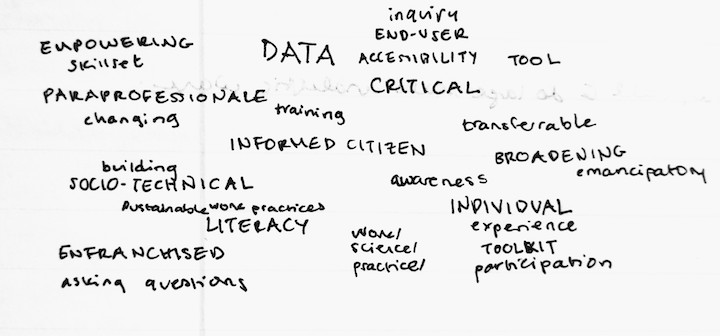 inquiry
END-USER
EMPOWERING
DATA
ACCESSIBILITY
TOOL
skillset
CRITICAL
PARAPROFESSIONALE
training
changing
transferrable
INFORMED CITIZEN
BROADENING
building
emancipatory
SOCIO-TECHNICAL
awareness
sustainable work practices
INDIVIDUAL
LITERACY
experience
work/
science/
TOOLKIT
ENFRANCHISED
practice/
participation
asking questions